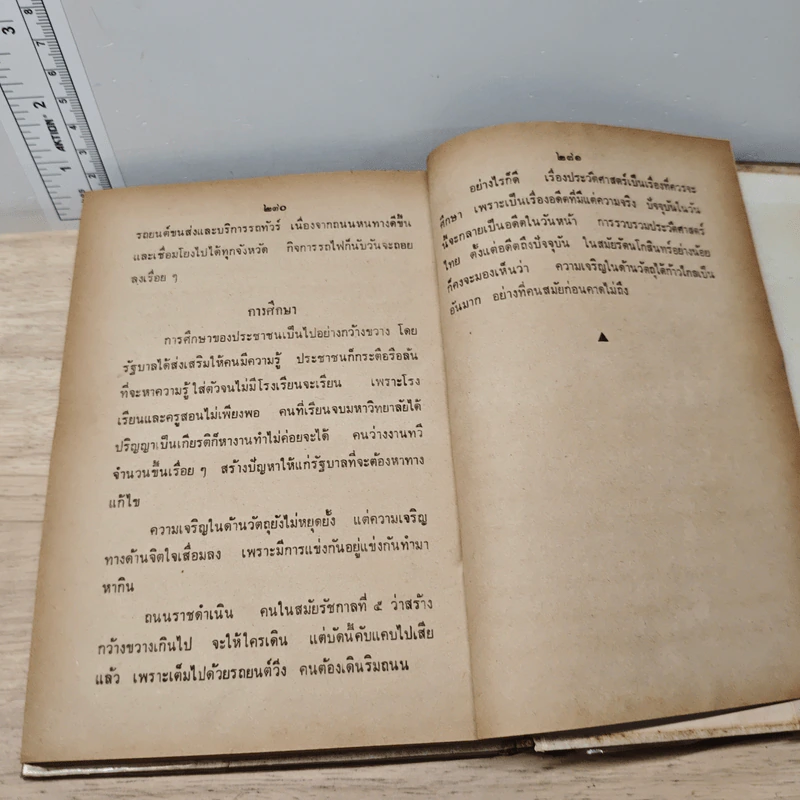 3
2
1
AKTION
8
7
6
5
4
3
๒๗๐
รถยนต์ขนส่งและบริการรถทัวร์ เนื่องจากถนนหนทางดีขึ้น
และเชื่อมโยงไปได้ทุกจังหวัด กิจการรถไฟก็นับวันจะถอย
ลงเรื่อย ๆ
การศึกษา
การศึกษาของประชาชนเป็นไปอย่างกว้างขวาง โดย
รัฐบาลได้ส่งเสริมให้คนมีความรู้ ประชาชนก็กระตือรือล้น
ที่จะหาความรู้ ใส่ตัวจนไม่มีโรงเรียนจะเรียน เพราะโรง
เรียนและครูสอนไม่เพียงพอ คนที่เรียนจบมหาวิทยาลัยได้
ปริญญาเป็นเกียรติก็หางานทำไม่ค่อยจะได้ คนว่างงานทวี
จำนวนขึ้นเรื่อย ๆ สร้างปัญหาให้แก่รัฐบาลที่จะต้องหาทาง
แก้ไข
ความเจริญในด้านวัตถุยังไม่หยุดยั้ง แต่ความเจริญ
ทางด้านจิตใจเสื่อมลง เพราะมีการแข่งกันอยู่แข่งกันทำมา
หากิน
ถนนราชดำเนิน คนในสมัยรัชกาลที่ ๕ ว่าสร้าง
กว้างขวางเกินไป จะให้ใครเดิน แต่บัดนี้คับแคบไปเสีย
แล้ว เพราะเต็มไปด้วยรถยนต์วิ่ง คนต้องเดินริมถนน
๒๗๑
อย่างไรก็ดี เรื่องประวัติศาสตร์เป็นเรื่องที่ควรจะ
ศึกษา เพราะเป็นเรื่องอดีตที่มีแต่ความจริง ปัจจุบันในวัน
นี้จะกลายเป็นอดีตในวันหน้า การรวบรวมประวัติศาสตร์
ไทย ตั้งแต่อดีตถึงปัจจุบัน ในสมัยรัตนโกสินทร์อย่างน้อย
ก็คงจะมองเห็นว่า ความเจริญในด้านวัตถุได้ก้าวไกลเป็น
อันมาก อย่างที่คนสมัยก่อนคาดไม่ถึง